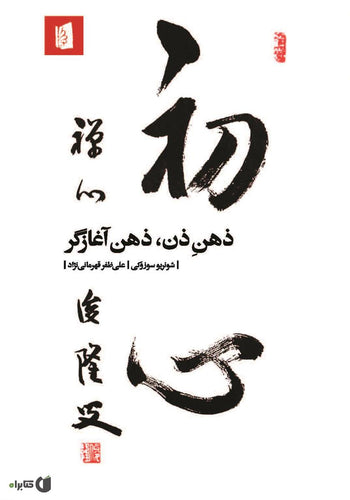 初心
禅心
ذهنِ ذن، ذهن آغازگر
| شونریو سوزوکی | علی‌ظفر قهرمانی‌نژاد |
俊隆
کتابراه